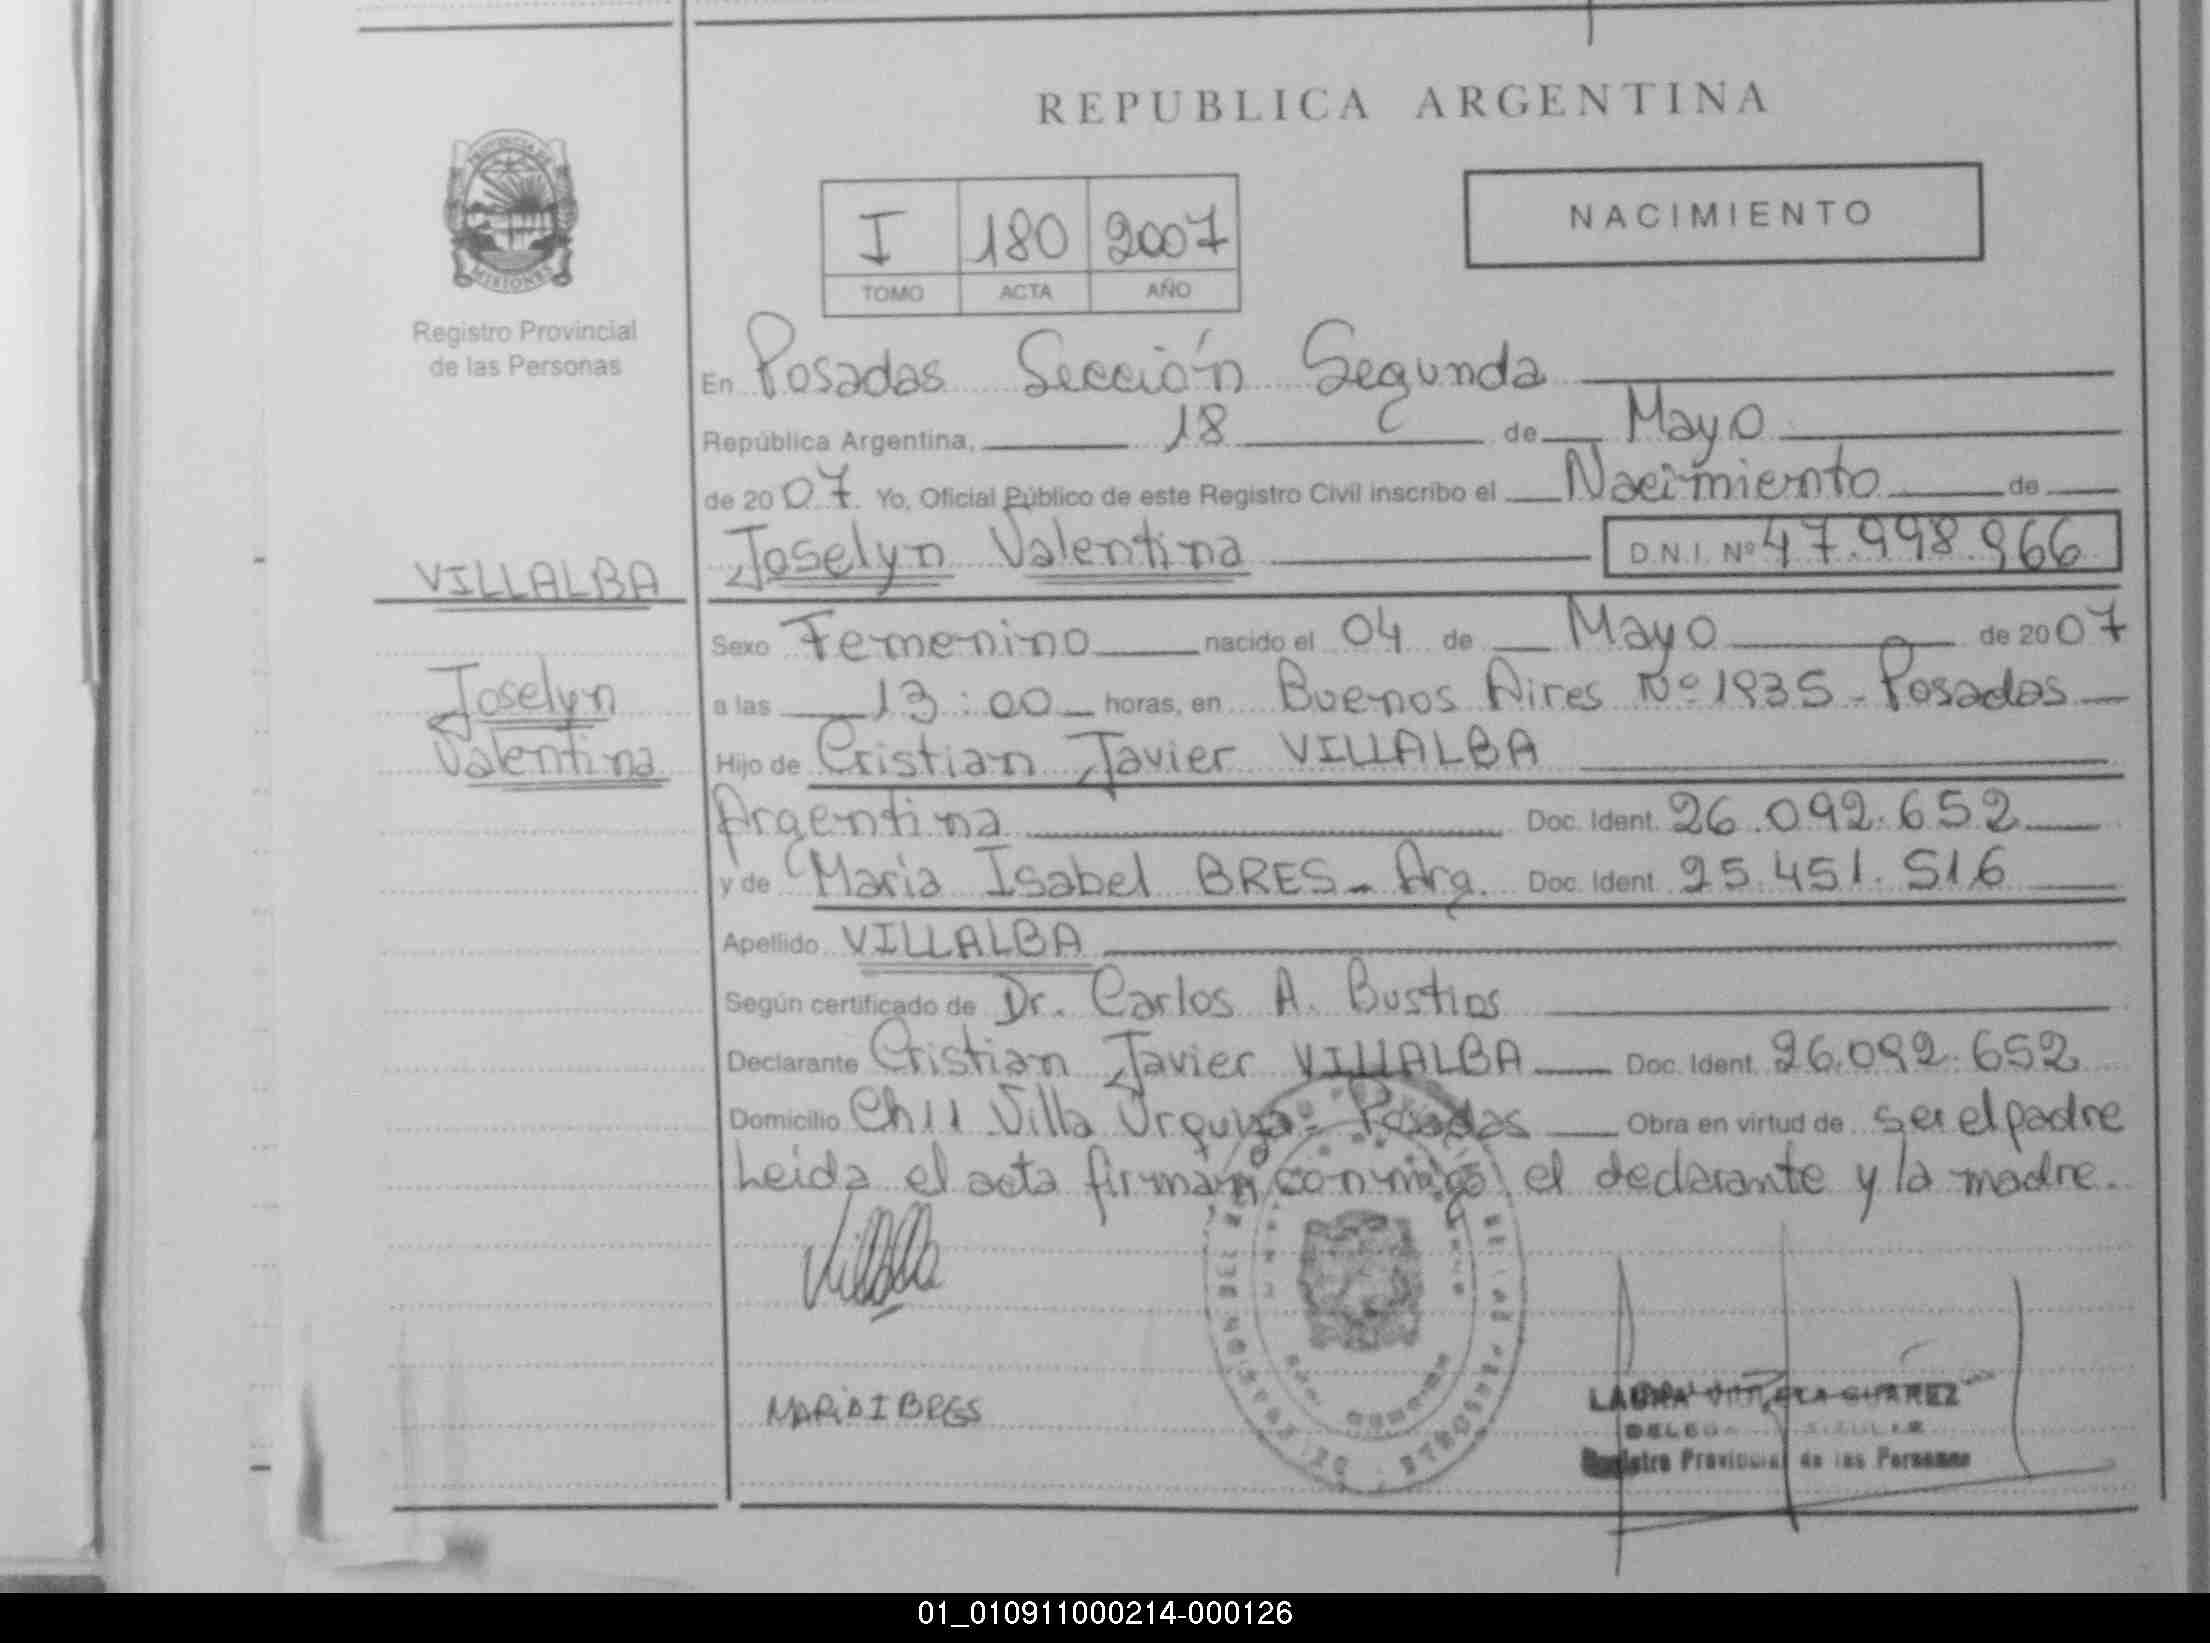 REPUBLICA ARGENTINA
PROVINCIA DE
MISIONES
Registro Provincial
de las Personas
I 180 2007
TOMO ACTA AÑO
NACIMIENTO
En Posadas Sección Segunda
República Argentina, 18 de Mayo
de 2007. Yo, Oficial Público de este Registro Civil inscribo el Nacimiento de
VILLALBA
Joselyn Valentina D.N.I. Nº 47.998.966
Sexo Femenino nacido el 04 de Mayo de 2007
Joselyn
Valentina
a las 13:00 horas, en Buenos Aires Nº 1935 - Posadas
Hijo de Cristian Javier VILLALBA
Argentina Doc. Ident. 26.092.652
y de Maria Isabel BRES - Arg. Doc. Ident. 25.451.516
Apellido VILLALBA
Según certificado de Dr. Carlos A. Bustios
Declarante Cristian Javier VILLALBA Doc. Ident. 26.092.652
Domicilio Ch 11 Villa Urquiza - Posadas Obra en virtud de ser el padre
Leida el acta firman conmigo el declarante y la madre.
MARIA I BRES
LAURA SUAREZ
Registro Provincial de las Personas
01_010911000214-000126